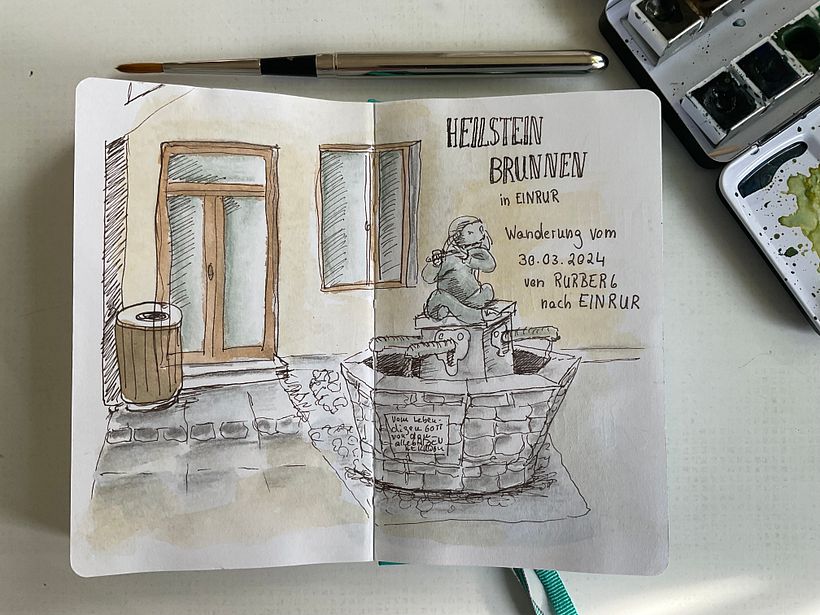 HEILSTEIN
BRUNNEN
in EINRUR
Wanderung vom
30.03.2024
von RURBERG
nach EINRUR
Vom Leben-
digen GOTT
von dem
alles